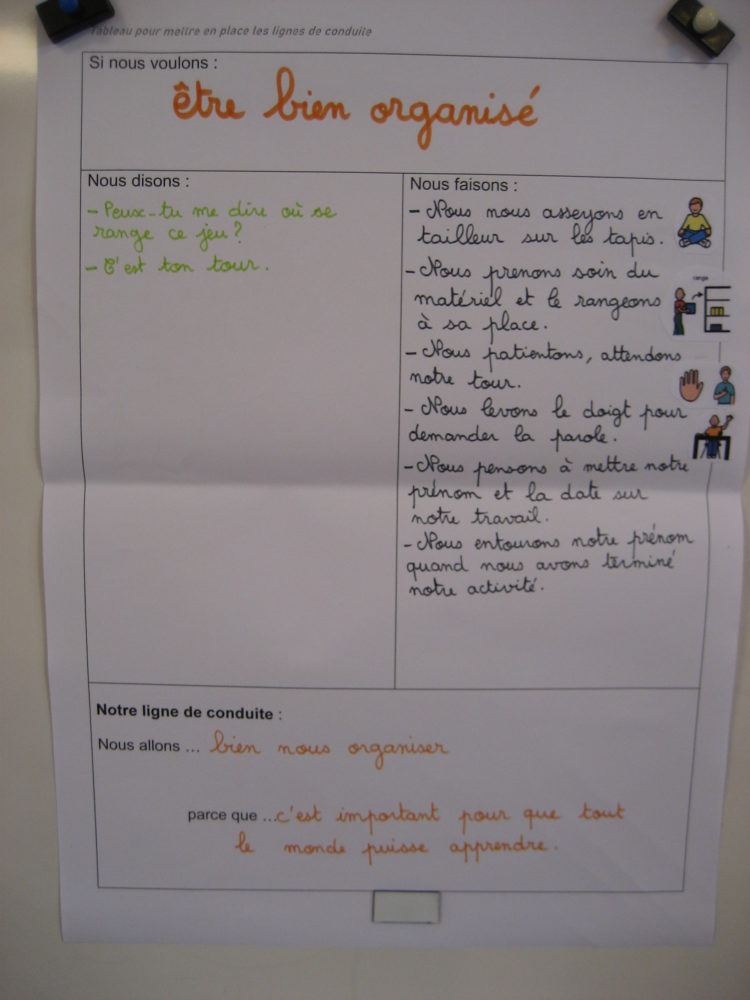 Tableau pour mettre en place les lignes de conduite
Si nous voulons :
être bien organisé
Nous disons :
- Peux-tu me dire où se
range ce jeu ?
- C'est ton tour.
Nous faisons :
- Nous nous asseyons en
tailleur sur les tapis.
- Nous prenons soin du
matériel et le rangeons
à sa place.
- Nous patientons, attendons
notre tour.
- Nous levons le doigt pour
demander la parole.
- Nous pensons à mettre notre
prénom et la date sur
notre travail.
- Nous entourons notre prénom
quand nous avons terminé
notre activité.
range
Notre ligne de conduite :
Nous allons ... bien nous organiser
parce que ...c'est important pour que tout
le monde puisse apprendre.